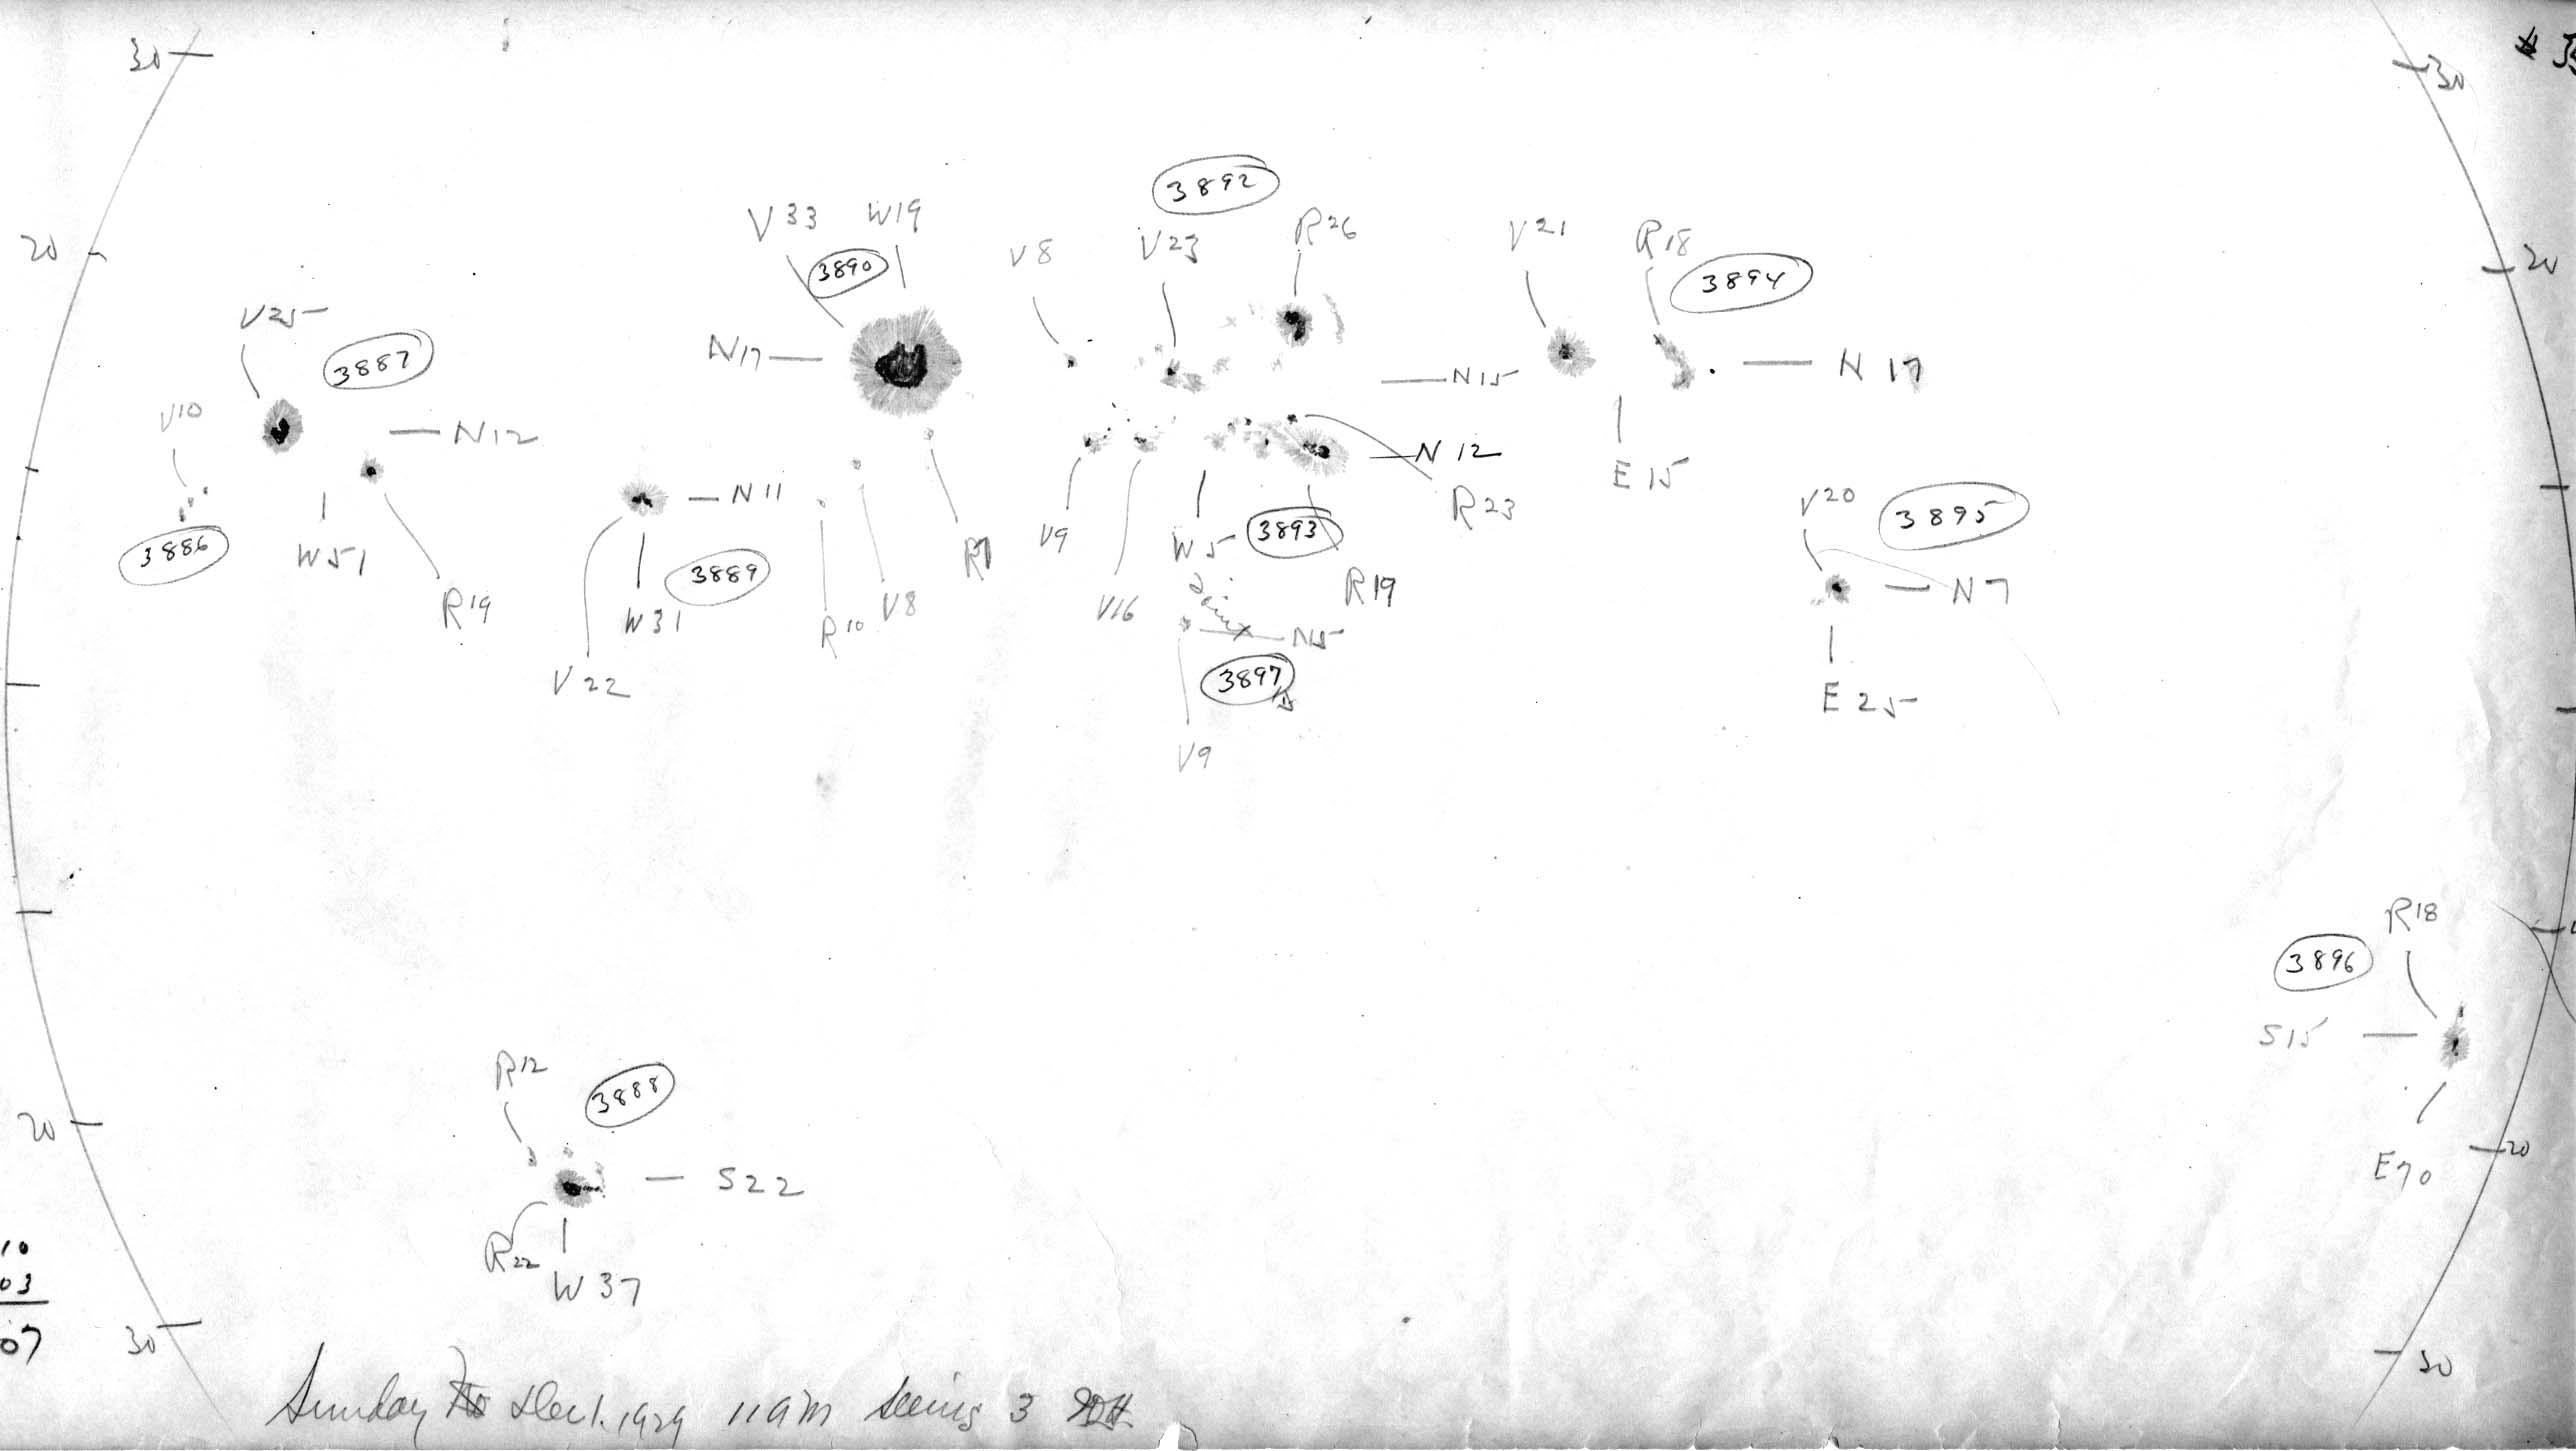 30
30
3892
V33
W19
R26
20
V8
V23
V21
R18
20
3890
3894
V25
N17
N15
N 17
3887
V10
N12
N 12
E 15
N11
R23
V20
3895
3886
W51
R1
V9
W5
3893
3889
R19
W31
R10
V8
V16
R19
N7
N5
V22
3897
E 25
V9
R18
3896
S15
R12
3888
20
20
S22
E70
R22
W37
10
03
07
30
30
Sunday Dec 1. 1929 11am Seeing 3